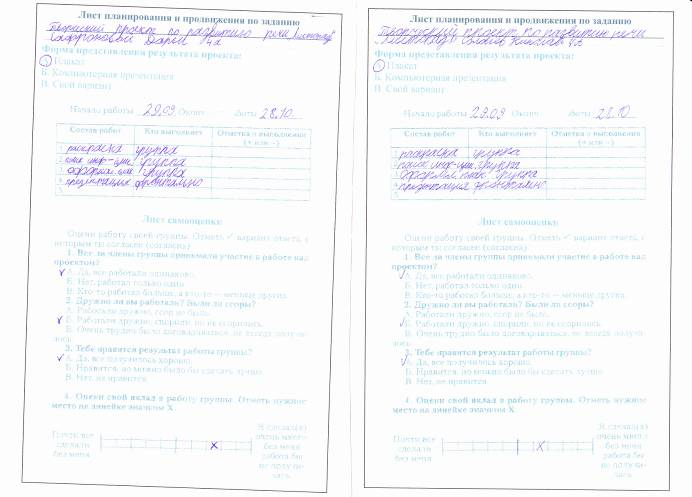 Лист планирования и продвижения по заданию
Творческий проект по развитию речи
Сафроновой Дарьи 4а
Форма представления результата проекта:
А Плакат
Б. Компьютерная презентация
В. Свой вариант
Начало работы 29.09. Оконч работы 28.10.
Состав работ Кто выполняет Отметка о выполнении (+ или –)
1. раскраска группа
2. поиск инф-ции группа
3. группа
4. презентация фронтально
5.
Лист самооценки
Оцени работу своей группы. Отметь ✓ вариант ответа, с
которым ты согласен (согласна)
1. Все ли члены группы принимали участие в работе над
проектом?
✓ А. Да, все работали одинаково.
Б. Нет, работал только один.
В. Кто-то работал больше, а кто-то — меньше других.
2. Дружно ли вы работали? Были ли ссоры?
А. Работали дружно, ссор не было.
✓ Б. Работали дружно, спорили, но не ссорились.
В. Очень трудно было договариваться, не всегда получа-
лось.
3. Тебе нравится результат работы группы?
✓ А. Да, все получилось хорошо.
Б. Нравится, но можно было бы сделать лучше.
В. Нет, не нравится.
4. Оцени свой вклад в работу группы. Отметь нужное
место на линейке значком Х.
Почти все
сделали
без меня
X
Я сделал(а)
очень много,
без меня
работа бы
не получи-
лась
Лист планирования и продвижения по заданию
Творческий проект по развитию речи
4а
Форма представления результата проекта:
А Плакат
Б. Компьютерная презентация
В. Свой вариант
Начало работы 29.09 Оконч работы 28.10
Состав работ Кто выполняет Отметка о выполнении (+ или –)
1. раскраска группа
2. поиск инф-ции группа
3. оформл. плак. группа
4. презентация фронтально
5.
Лист самооценки
Оцени работу своей группы. Отметь ✓ вариант ответа, с
которым ты согласен (согласна)
1. Все ли члены группы принимали участие в работе над
проектом?
✓ А. Да, все работали одинаково.
Б. Нет, работал только один.
В. Кто-то работал больше, а кто-то — меньше других.
2. Дружно ли вы работали? Были ли ссоры?
А. Работали дружно, ссор не было.
✓ Б. Работали дружно, спорили, но не ссорились.
В. Очень трудно было договариваться, не всегда получа-
лось.
3. Тебе нравится результат работы группы?
✓ А. Да, все получилось хорошо.
Б. Нравится, но можно было бы сделать лучше.
В. Нет, не нравится.
4. Оцени свой вклад в работу группы. Отметь нужное
место на линейке значком Х.
Почти все
сделали
без меня
X
Я сделал(а)
очень много,
без меня
работа бы
не получи-
лась